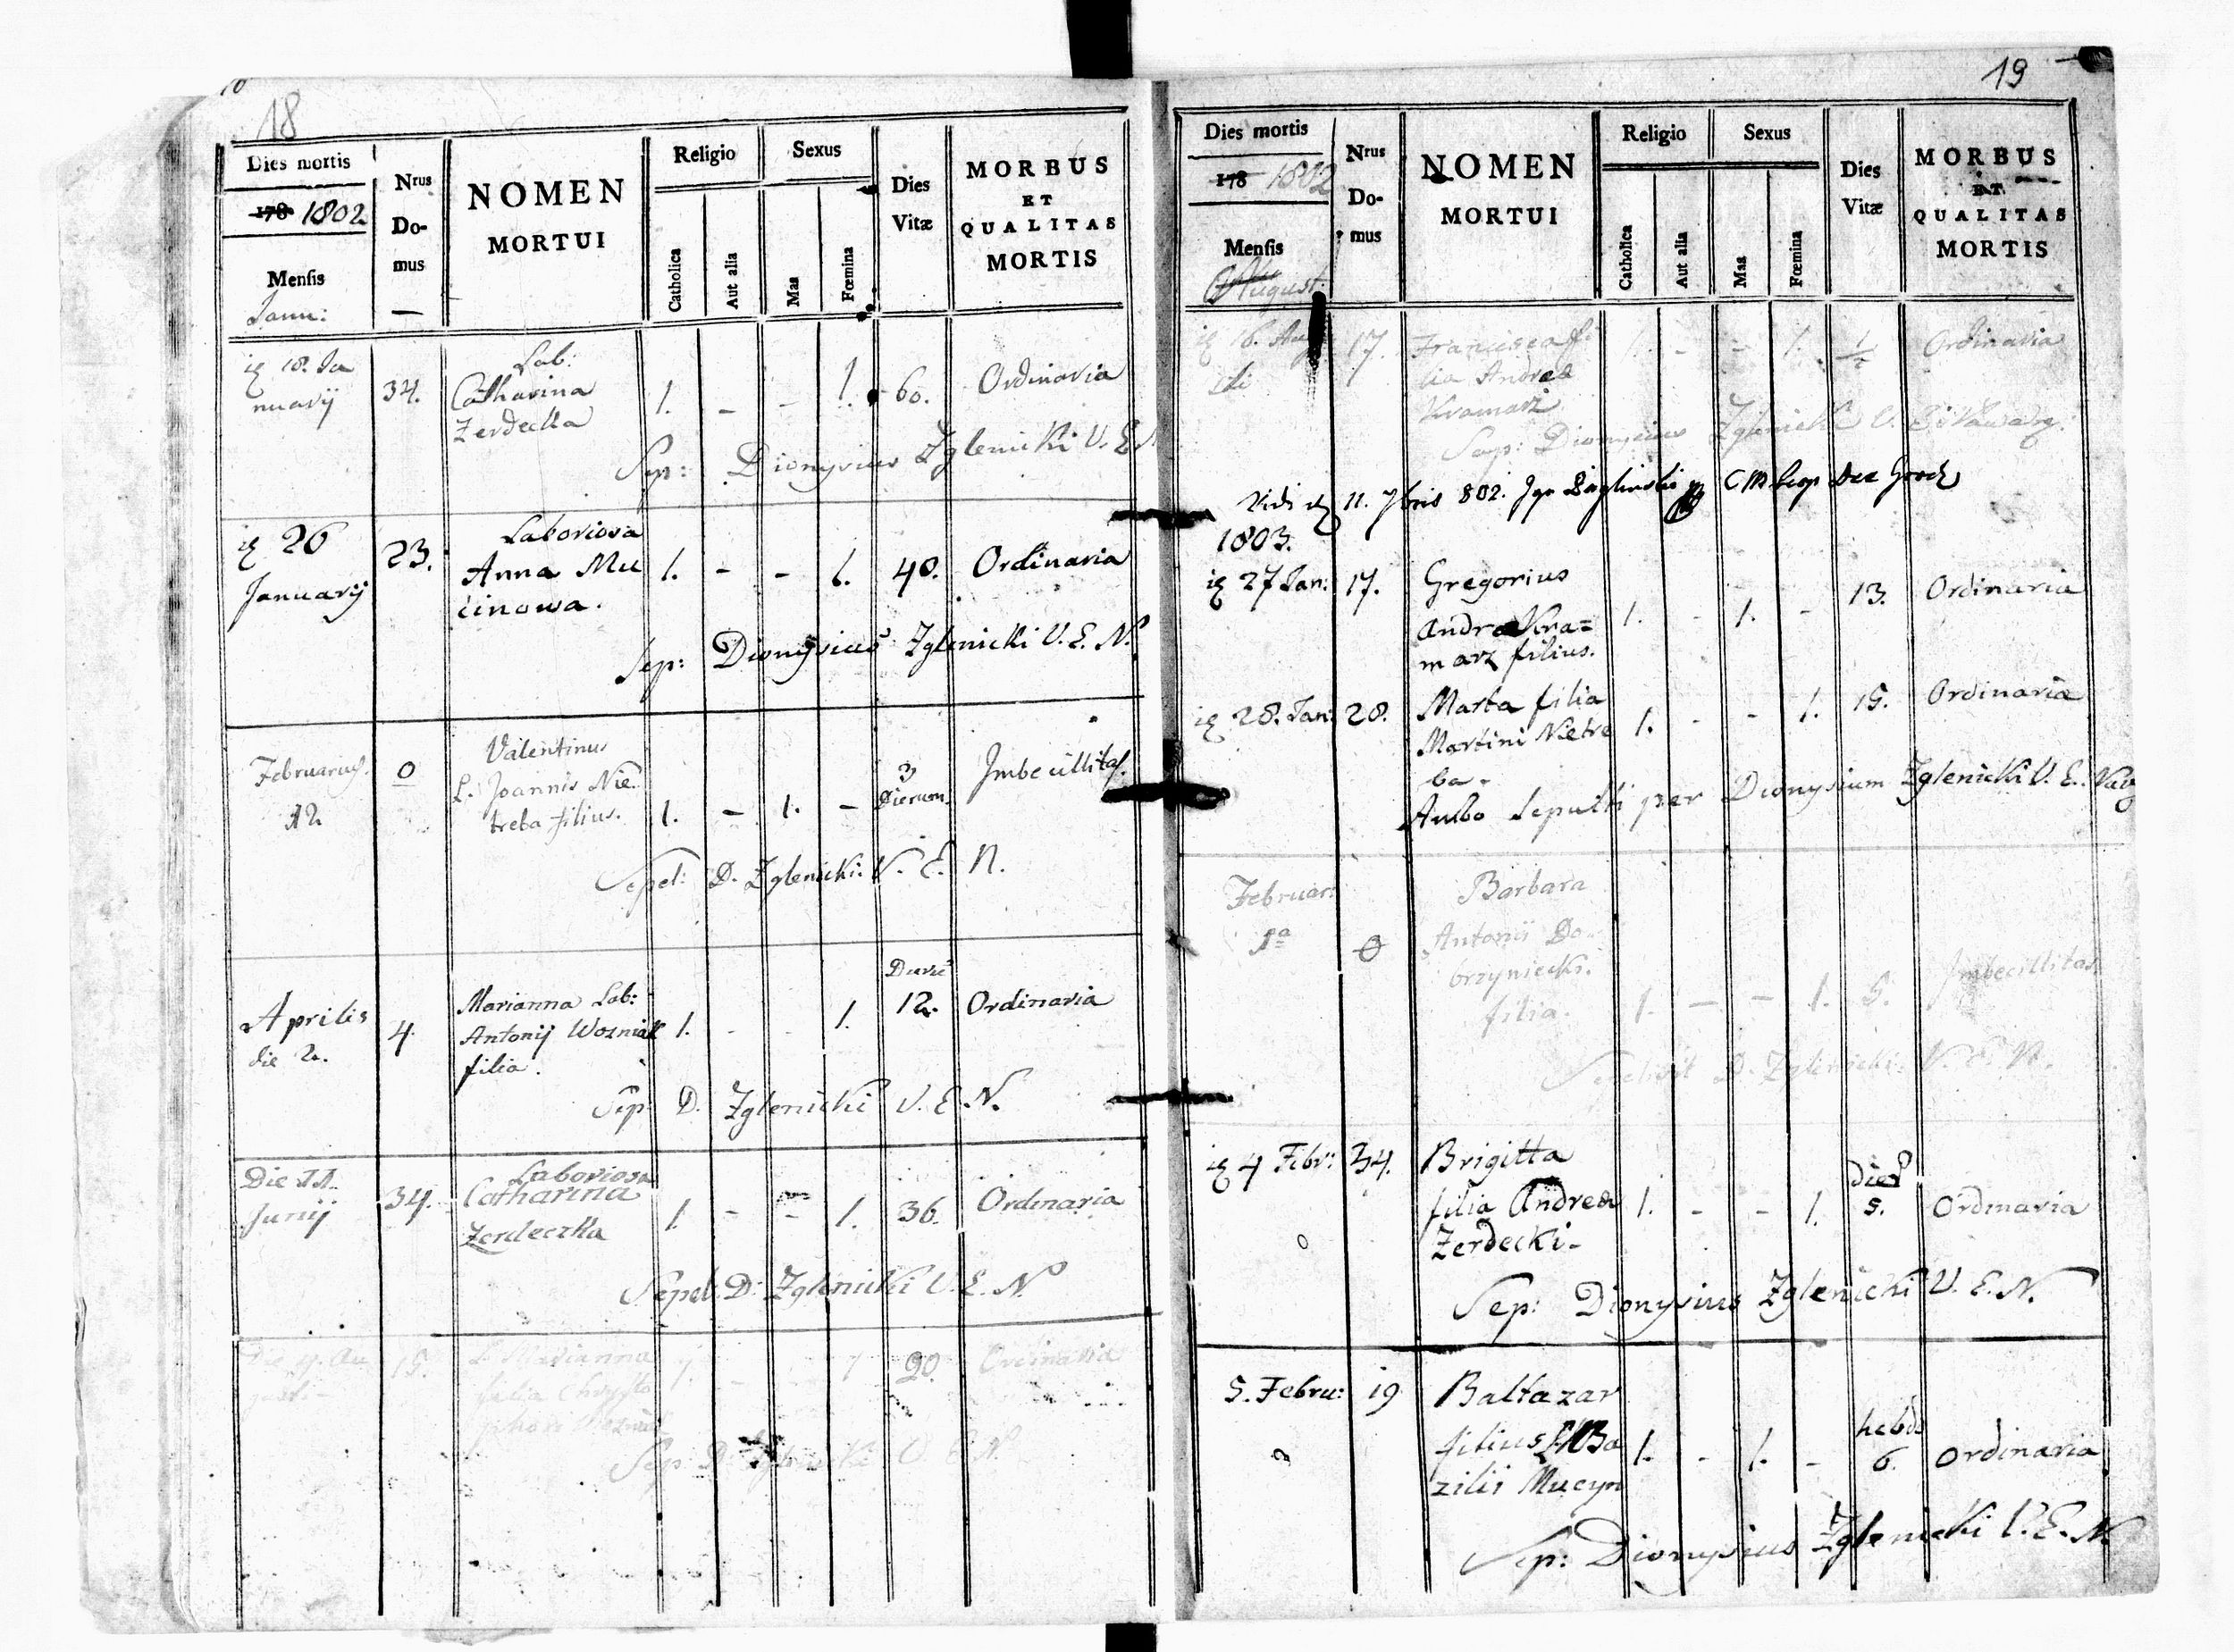 18
Dies mortis
178 1802
Mensis
Janu:
Nrus
Do-
mus
—
NOMEN
MORTUI
Religio
Catholica
Aut alia
Sexus
Mas
Fœmina
Dies
Vitæ
MORBUS
ET
QUALITAS
MORTIS
18. Ja
nuarij
34.
Lab:
Catharina
Zerdecka
1. - - 1. 60. Ordinaria
Sep: Dionysius Zglenicki V. E.
26
Januarij
23.
Laboriosa
Anna Mu
cinowa.
1. - - 1. 40. Ordinaria
Sep: Dionysius Zglenicki V. E. N.
Februarius
12
0
Valentinus
L. Joannis Nie
treba filius.
1. - 1. -
3
Dierum
Imbecillitas
Sepel: D. Zglenicki. V. E. N.
Aprilis
die 2.
4.
Marianna Lab:
Antonij Wozniak
filia.
1. - - 1.
12. Ordinaria
Sep D. Zglenicki V. E. N.
Die 11
Junij
34.
Laboriosa
Catharina
Zerdeczka
1. - - 1. 36. Ordinaria
Sepel: D: Zglenicki V. E. N.
Au
gusti
15.
L. Marianna
filia Chrysto
phori
1 - - 1 90. Ordinaria
Sep D. V. E. N.
19
Dies mortis
178 1802
Mensis
August:
Nrus
Do-
mus
NOMEN
MORTUI
Religio
Catholica
Aut alia
Sexus
Mas
Fœmina
Dies
Vitæ
MORBUS
ET
QUALITAS
MORTIS
16. Aug
17.
Francisca fi
lia Andrea
Kramarz
1. - - 1. 1/2 Ordinaria
Sep: Dionysius Zglenicki V.
Vidi 11. 7bris 802.
1803.
27 Jan: 17.
Gregorius
Andrea Kra=
marz filius.
1. - 1. - 13. Ordinaria
28. Jan: 28.
Marta filia
Martini Nietre
ba.
1. - - 1. 15. Ordinaria
Ambo Sepulti per Dionysium Zglenicki V. E.
Februar:
1a
0
Barbara
Antonii Do
brzyniecki.
filia.
1. - - 1. 5. Imbecillitas
Sepelivit D. Zglenicki. V. E. N.
4 Febr: 34.
Brigitta
filia Andrea
Zerdecki-
1. - - 1.
Dies
5. Ordinaria
Sep: Dionysius Zglenicki V. E. N.
5. Febru: 19
Baltazar
filius Ba
zilii Mucyn
1. - 1. -
hebdo
6. Ordinaria
Sep: Dionysius Zglenicki V. E. N.